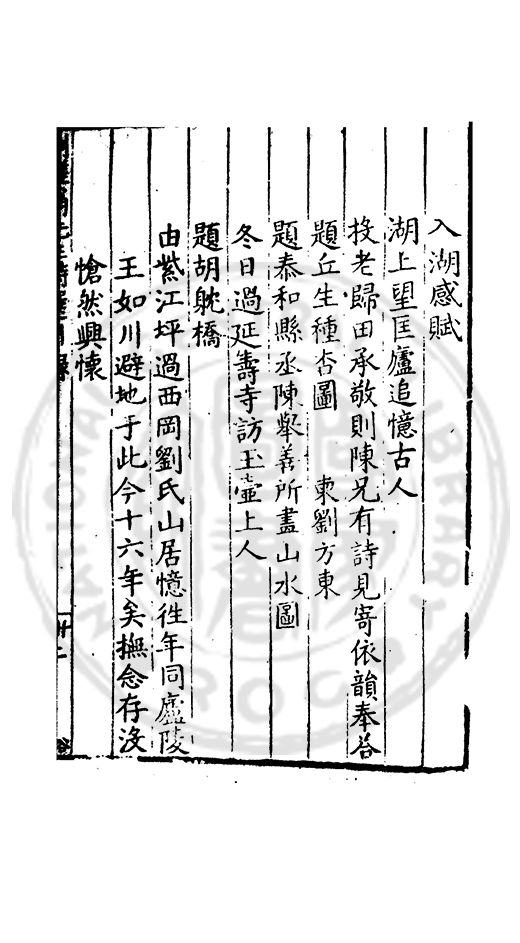 入湖感賦
湖上望匡廬追憶古人
投老歸田承敬則陳兄有詩見寄依韻奉答
題丘生種杏圖　柬劉方東
題泰和縣丞陳舉善所畫山水圖
冬日過延壽寺訪玉壷上人
題胡躭橋
由紫江坪過西岡劉氏山居憶徃年同廬陵
王如川避地于此今十六年矣撫念存沒
愴然興懷